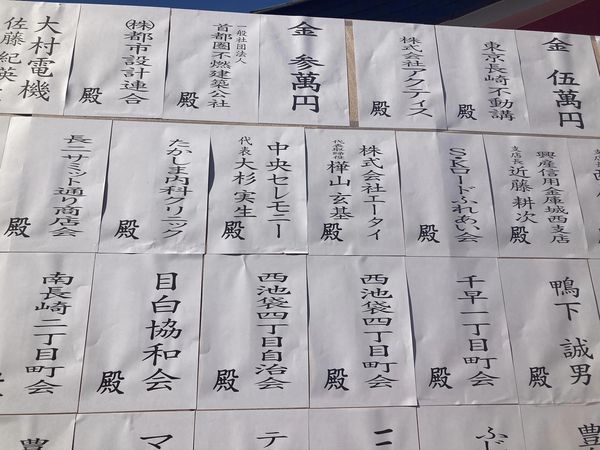 金 伍萬円
東京長崎不動講 殿
株式会社アクティス 殿
金 参萬円
一般社団法人
首都圏不燃建築公社 殿
㈱都市設計連合 殿
大村電機
佐藤 紀英
興産信用金庫城西支店
支店長 近藤 耕次 殿
SKロードふれあい会 殿
株式会社エータイ
代表取締役 樺山 玄基 殿
中央セレモニー
代表 大杉 実生 殿
たかしま内科クリニック 殿
長一サミット通り商店会 殿
鴨下 誠男 殿
千早一丁目町会 殿
西池袋四丁目町会 殿
西池袋四丁目自治会 殿
目白協和会 殿
南長崎二丁目町会 殿
豊
ふ
テ
マ
豊